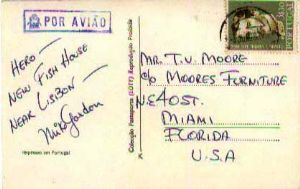 POR AVIÃO
PORTUGAL
HERO—
NEW FISH HOUSE
NEAR LISBON—
Impresso em Portugal
Colecção Passaporte (LOTY) Reprodução Proibida
MR. T.V. MOORE
c/o MOORES FURNITURE
N.E 40 ST.
MIAMI
FLORIDA
U.S.A